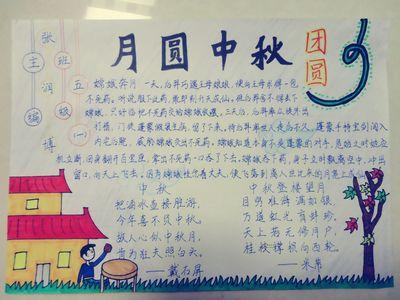 月圆中秋
团圆
主编
张润博
班级
五(一)
嫦娥奔月 一天,后羿巧遇王母娘娘,便向王母求得一包
不死药。听说,服下此药,能即刻升天成仙。但后羿舍不得丢下
嫦娥,只好把不死药交给嫦娥收藏。三天后,后羿率众徒外出
打猎,门徒蓬蒙假装生病,留了下来。待后羿率众人走后不久,蓬蒙手持宝剑闯入
内宅后院,威胁嫦娥交出不死药。嫦娥知道不是蓬蒙的对手,危急之时她当
机立断,回身翻开百宝匣,拿出不死药一口吞了下去。嫦娥吞下药,身子立时飘离空中,冲出
窗口,向天上飞去。因为嫦娥牵挂着丈夫,便飞落到离人世最近的月亮上成仙
中秋
把酒冰壶接胜游
今年喜不负中秋。
故人心似中秋月,
肯为狂夫照白头。
——戴石屏
中秋登楼望月
目穷淮海满如银,
万道虹光育蚌珍。
天上若无修月户,
桂枝撑损向西轮。
——米芾